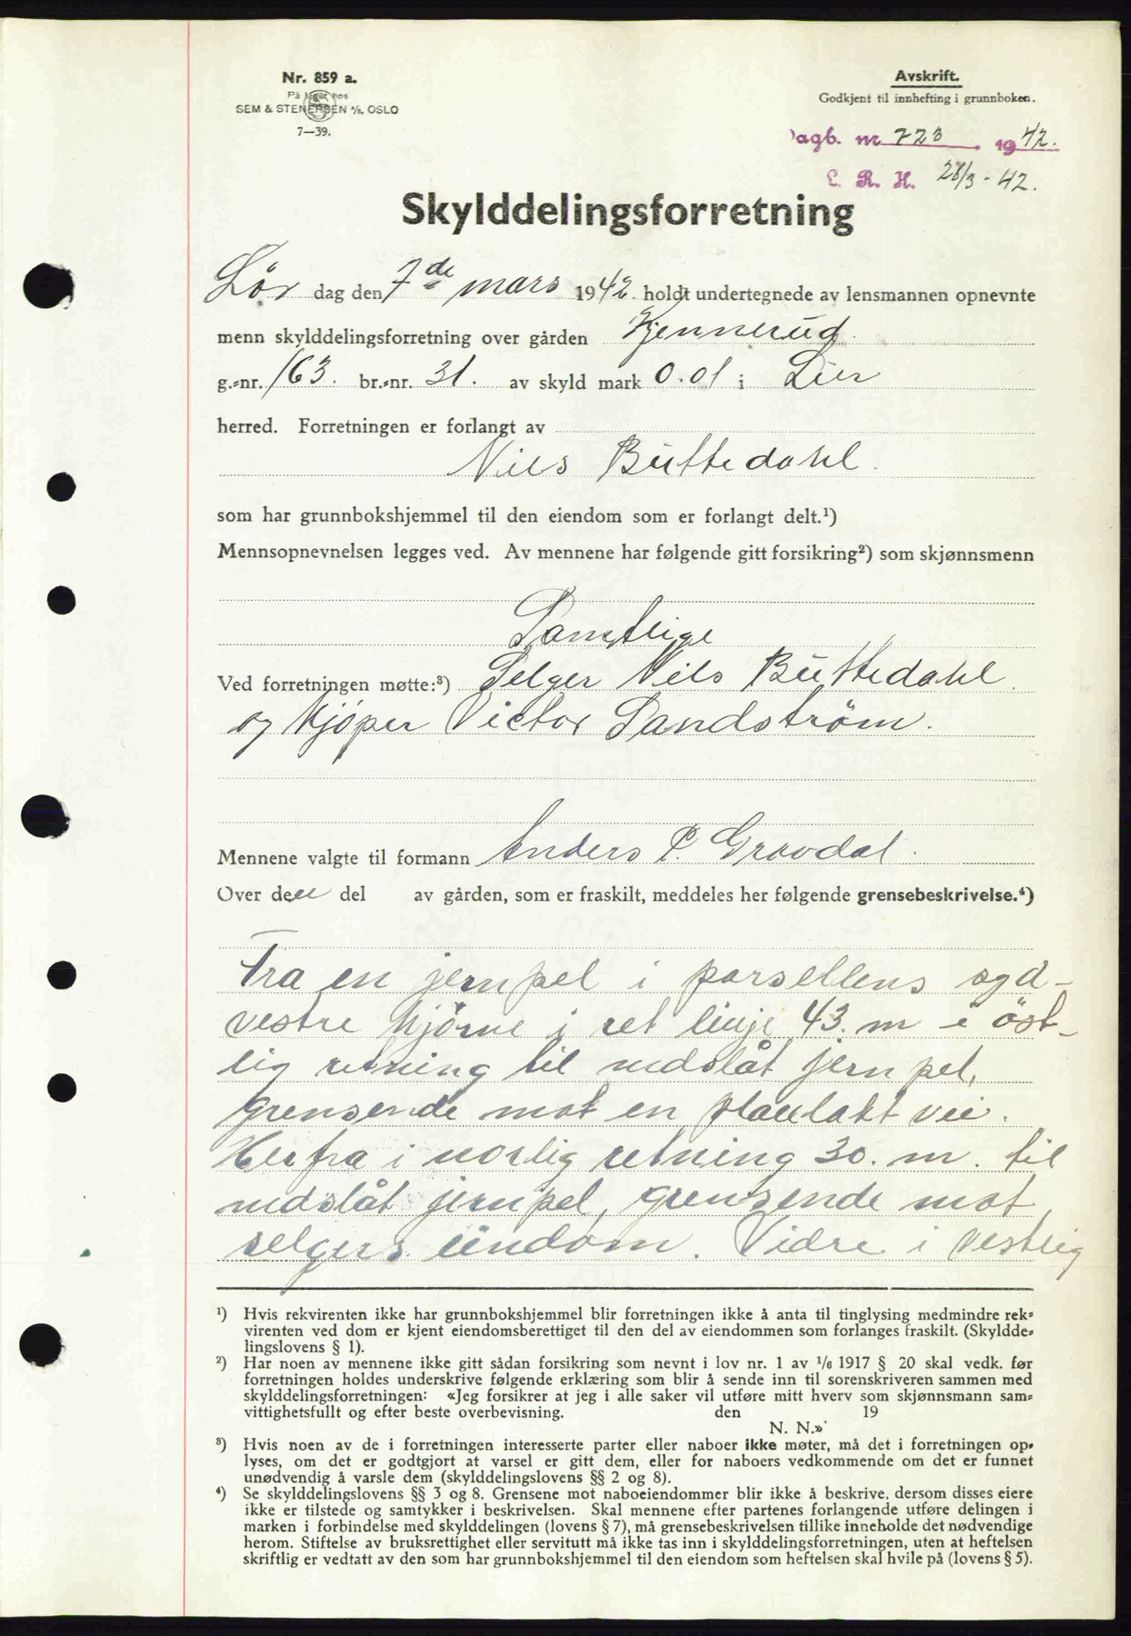 Nr. 859 a.
På lager hos
SEM & STENERSEN A/S, OSLO
7—39.
Avskrift.
Godkjent til innhefting i grunnboken.
Dagb. nr. 723 . 1942.
L. R. H. 28/3 - 42.
Skylddelingsforretning
Lör dag den 7de mars 1942. holdt undertegnede av lensmannen opnevnte
menn skylddelingsforretning over gården Kjennerud.
g.-nr. 163. br.-nr. 31. av skyld mark 0.01 i Lier
herred. Forretningen er forlangt av
Nils Büttedahl.
som har grunnbokshjemmel til den eiendom som er forlangt delt.¹)
Mennsopnevnelsen legges ved. Av mennene har følgende gitt forsikring²) som skjønnsmenn
Samtlige
Ved forretningen møtte:³) Selger Nils Büttedahl.
og Kjöper Victor Sandström.
Mennene valgte til formann Anders P. Gravdal.
Over den del av gården, som er fraskilt, meddeles her følgende grensebeskrivelse.⁴)
Fra en jernpel i parsellens syd-
vestre hjörne i ret linje 43. m i öst-
lig retning til nedslåt jernpel,
grensende mot en planlakt vei.
Herfra i norlig retning 30. m. til
nedslåt jernpel, grensende mot
selgers eindom. Vidre i vestlig
¹) Hvis rekvirenten ikke har grunnbokshjemmel blir forretningen ikke å anta til tinglysing medmindre rek-
virenten ved dom er kjent eiendomsberettiget til den del av eiendommen som forlanges fraskilt. (Skyldde-
lingslovens § 1).
²) Har noen av mennene ikke gitt sådan forsikring som nevnt i lov nr. 1 av ¹/₆ 1917 § 20 skal vedk. før
forretningen holdes underskrive følgende erklæring som blir å sende inn til sorenskriveren sammen med
skylddelingsforretningen: «Jeg forsikrer at jeg i alle saker vil utføre mitt hverv som skjønnsmann sam-
vittighetsfullt og efter beste overbevisning. den 19
N. N.»
³) Hvis noen av de i forretningen interesserte parter eller naboer ikke møter, må det i forretningen op-
lyses, om det er godtgjort at varsel er gitt dem, eller for naboers vedkommende om det er funnet
unødvendig å varsle dem (skylddelingslovens §§ 2 og 8).
⁴) Se skylddelingslovens §§ 3 og 8. Grensene mot naboeiendommer blir ikke å beskrive, dersom disses eiere
ikke er tilstede og samtykker i beskrivelsen. Skal mennene efter partenes forlangende utføre delingen i
marken i forbindelse med skylddelingen (lovens § 7), må grensebeskrivelsen tillike inneholde det nødvendige
herom. Stiftelse av bruksrettighet eller servitutt må ikke tas inn i skylddelingsforretningen, uten at heftelsen
skriftlig er vedtatt av den som har grunnbokshjemmel til den eiendom som heftelsen skal hvile på (lovens § 5).